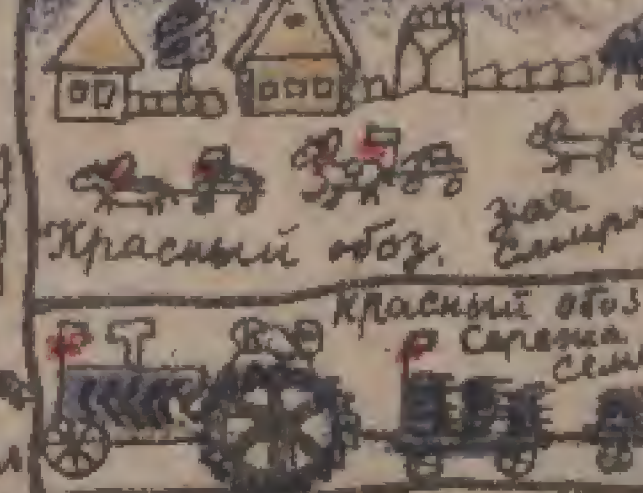 Красный обоз.
Зоя
Смирн
Красный обоз
Сережа
Сем